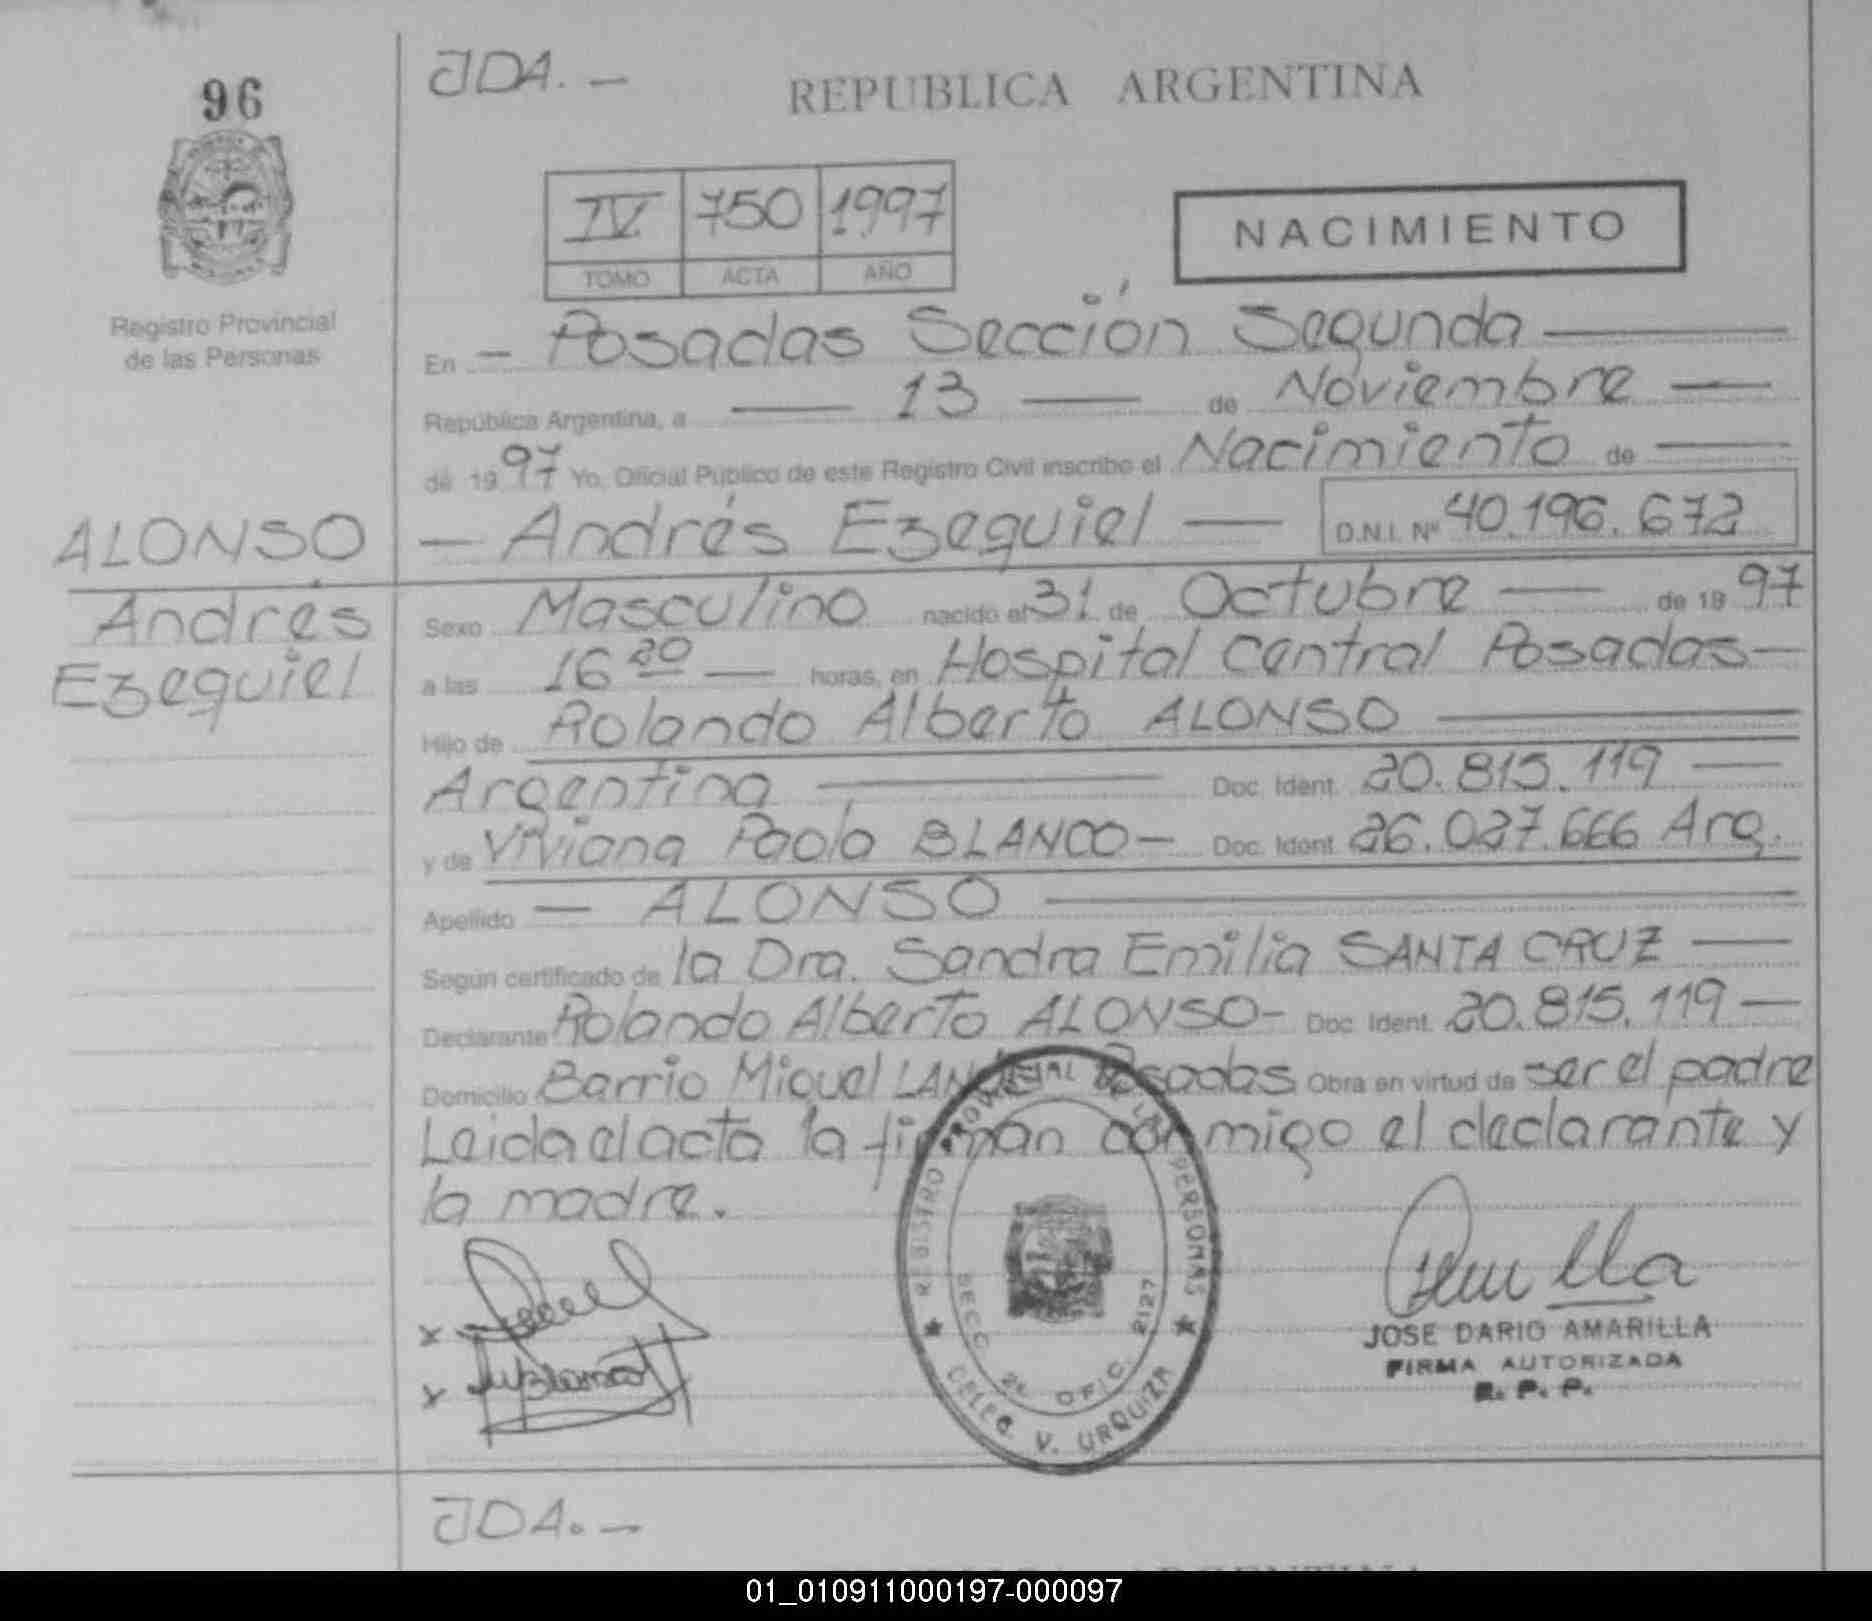 96
JDA. —
REPUBLICA ARGENTINA
IV 750 1997
TOMO ACTA AÑO
NACIMIENTO
Registro Provincial
de las Personas
En — Posadas Sección Segunda —
República Argentina, a — 13 — de Noviembre —
de 1997 Yo, Oficial Público de este Registro Civil inscribo el Nacimiento de —
ALONSO
Andrés
Ezequiel
— Andrés Ezequiel — D.N.I. Nº 40.196.672
Sexo Masculino nacido el 31 de Octubre — de 1997
a las 16 20 — horas, en Hospital Central Posadas —
Hijo de Rolando Alberto ALONSO —
Argentina — Doc. Ident. 20.815.119 —
y de Viviana Paola BLANCO — Doc. Ident. 26.027.666 Arg.
Apellido — ALONSO —
Según certificado de la Dra. Sandra Emilia SANTA CRUZ —
Declarante Rolando Alberto ALONSO - Doc. Ident. 20.815.119 —
Domicilio Barrio Miguel Posadas Obra en virtud de ser el padre
Leida el acta la firman conmigo el declarante y
la madre.
REGISTRO PROVINCIAL DE LAS PERSONAS
SECC 2ª OFIC. 2127
DELEG. V. URQUIZA
JOSE DARIO AMARILLA
FIRMA AUTORIZADA
R. P. P.
JDA. —
01_010911000197-000097